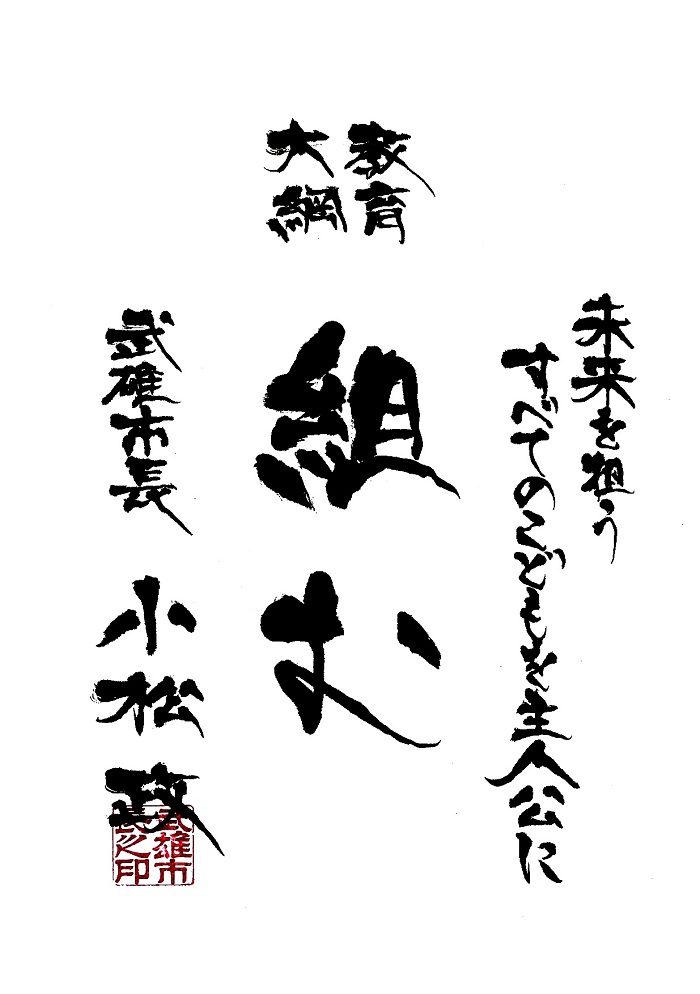 教育
大綱
未来を担う
すべてのこどもを主人公に
組む
武雄市長 小松 政
武雄市
長之印